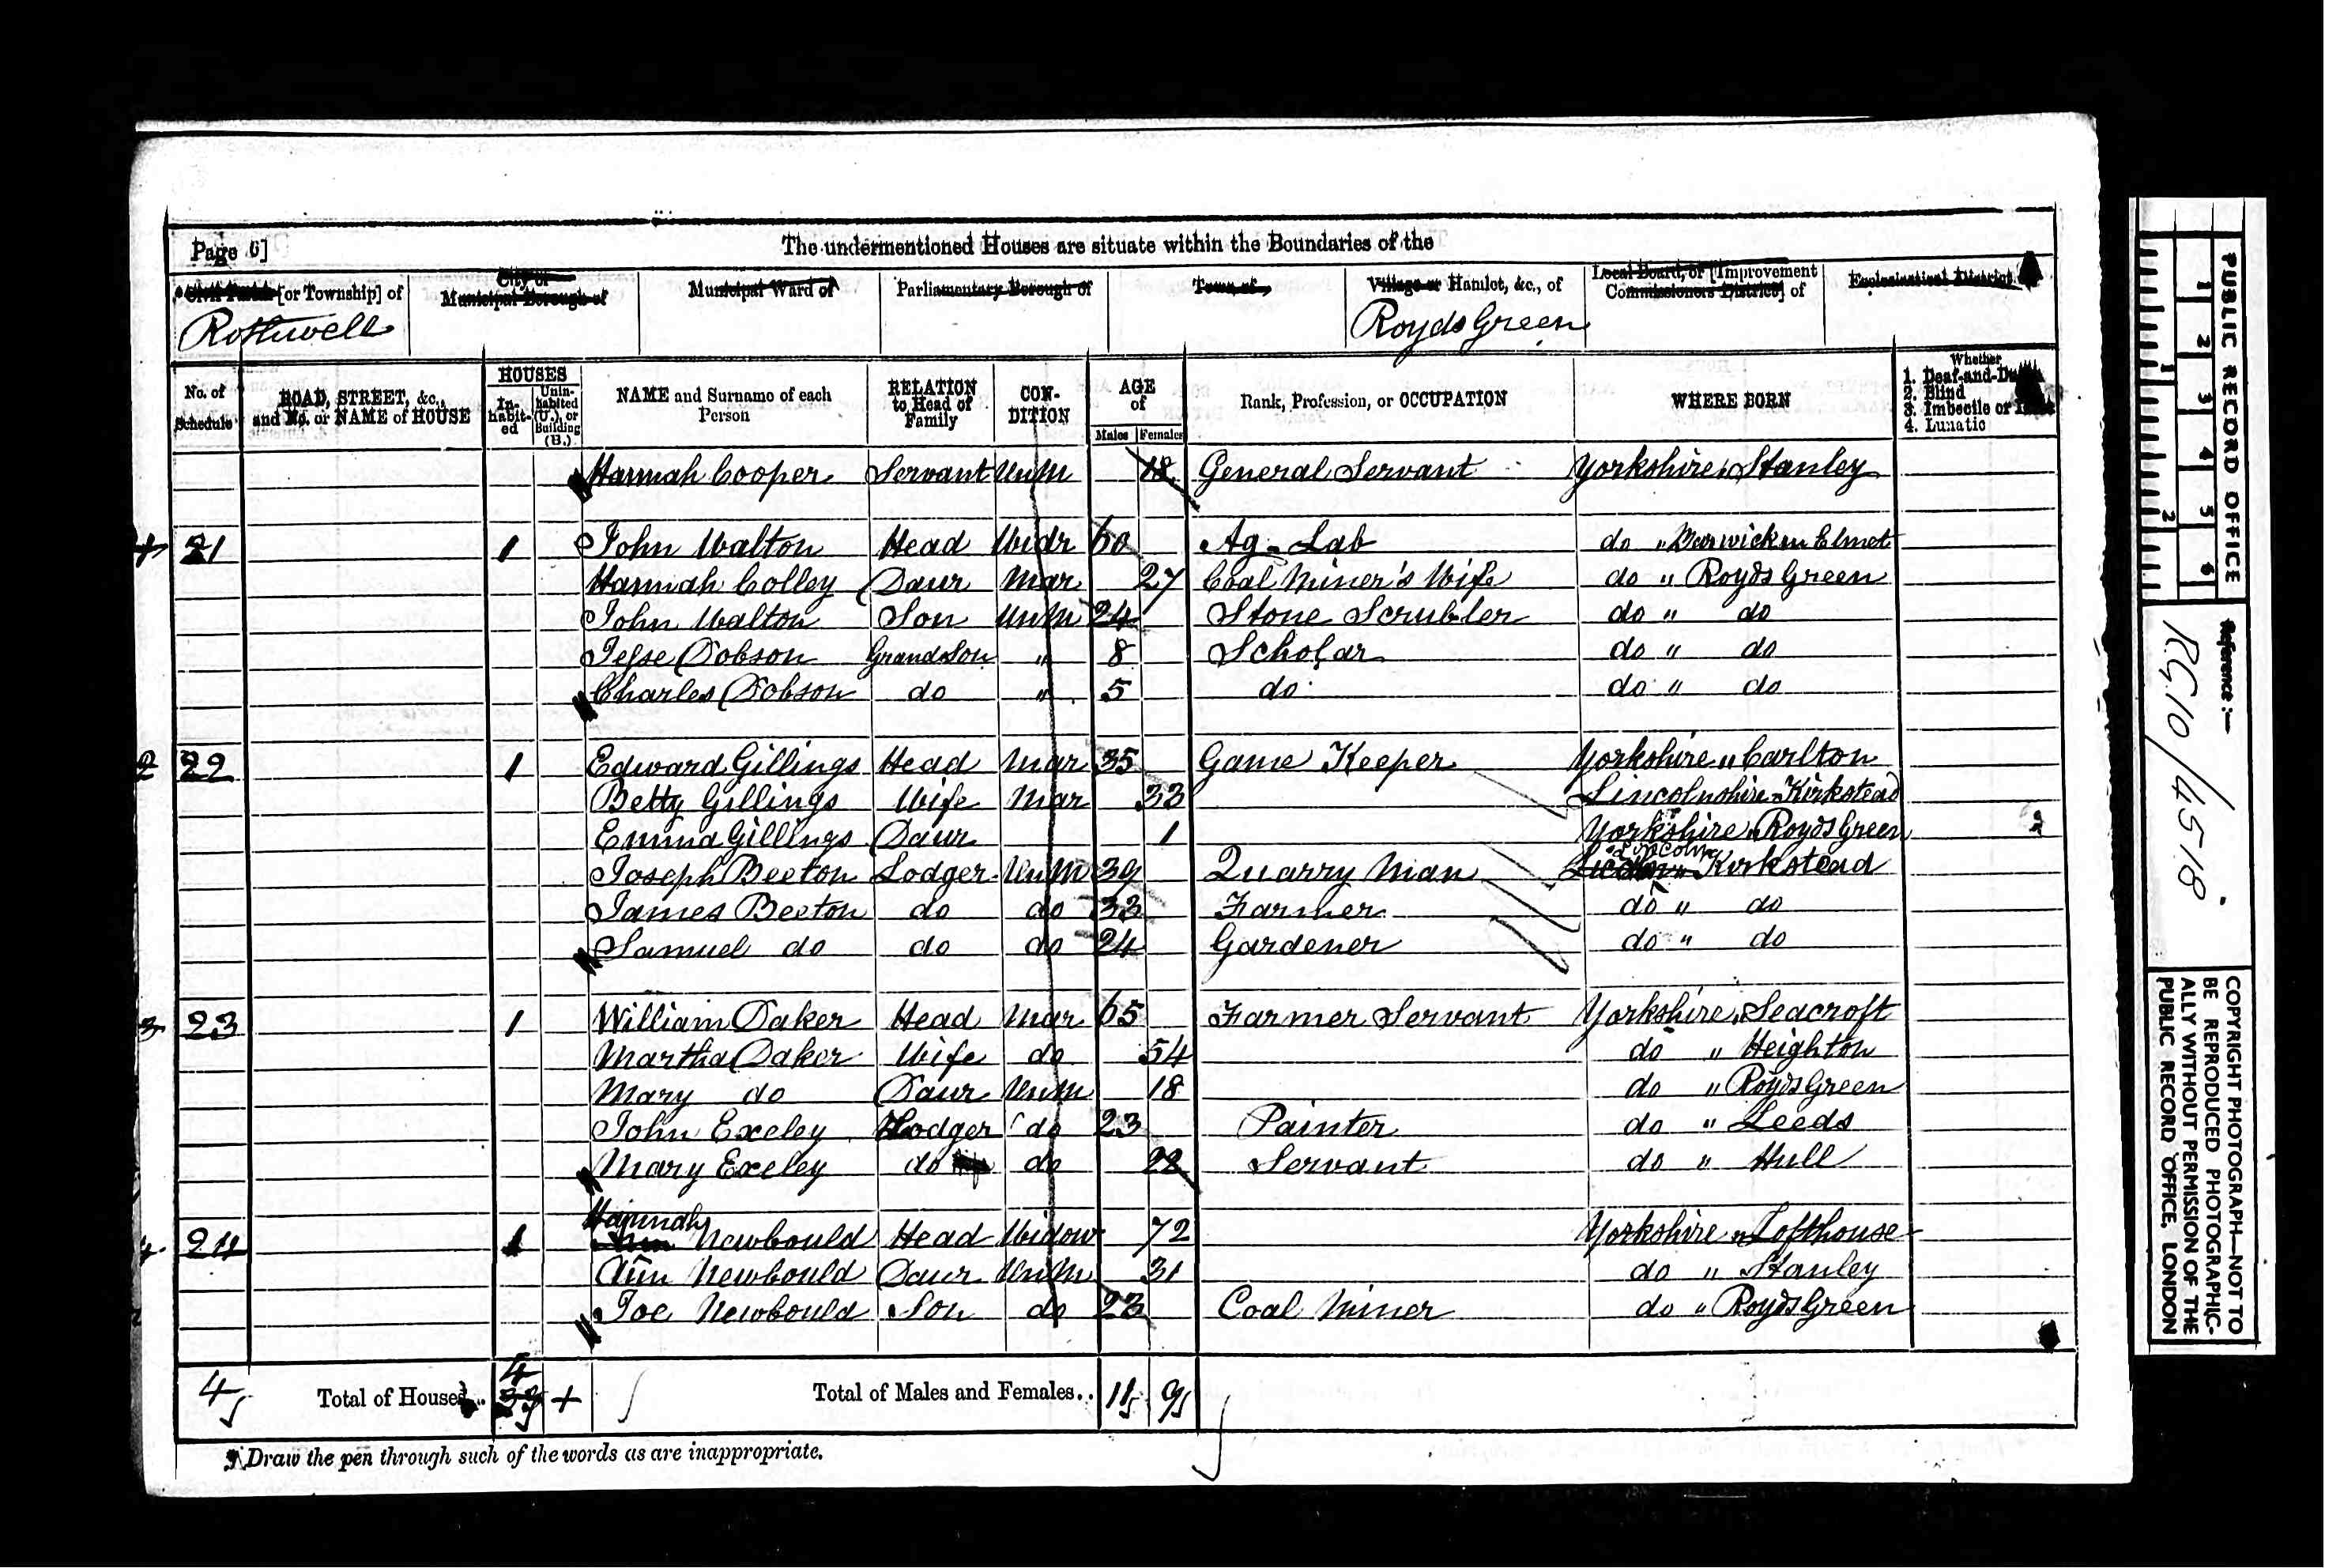 Page 6]
The undermentioned Houses are situate within the Boundaries of the
Civil Parish [or Township] of City or Municipal Borough of Municipal Ward of Parliamentary Borough of Town of Village or Hamlet, &c., of Local Board, or [Improvement Commissioners District] of Ecclesiastical District
Rothwell Royds Green
No. of Schedule ROAD, STREET, &c., and No. or NAME of HOUSE HOUSES Inhabited Uninhabited (U.), or Building (B.) NAME and Surname of each Person RELATION to Head of Family CONDITION AGE of Males Females Rank, Profession, or OCCUPATION WHERE BORN Whether 1. Deaf-and-Dumb 2. Blind 3. Imbecile or Idiot 4. Lunatic
Hannah Cooper Servant UnM 18 General Servant Yorkshire " Stanley
21 1 John Walton Head Widr 60 Ag. Lab do " Barwick in Elmet
Hannah Colley Daur Mar 27 Coal Miner's Wife do " Royds Green
John Walton Son UnM 24 Stone Scrubler do " do
Jesse Dobson GrandSon " 8 Scholar do " do
Charles Dobson do " 5 do do " do
2 22 1 Edward Gillings Head Mar 35 Game Keeper Yorkshire " Carlton
Betty Gillings Wife Mar 33 Lincolnshire - Kirkstead
Emma Gillings Daur 1 Yorkshire " Royds Green
Joseph Beeton Lodger UnM 39 Quarry Man Lincoln Kirkstead
James Beeton do do 33 Farmer do " do
Samuel do do do 24 Gardener do " do
3 23 1 William Daker Head Mar 65 Farmer Servant Yorkshire " Seacroft
Martha Daker Wife do 54 do " Heighton
Mary do Daur UnM 18 do " Royds Green
John Exeley Lodger do 23 Painter do " Leeds
Mary Exeley do do 22 Servant do " Hull
4 24 1 Hannah Newbould Head Widow 72 Yorkshire " Lofthouse
Ann Newbould Daur UnM 31 do " Stanley
Joe Newbould Son do 23 Coal Miner do " Royds Green
4 Total of Houses.. 4 + Total of Males and Females.. 11 9
Draw the pen through such of the words as are inappropriate.
PUBLIC RECORD OFFICE
1 2 3 4 5 6
1 2
Reference :-
RG 10/4518
COPYRIGHT PHOTOGRAPH—NOT TO
BE REPRODUCED PHOTOGRAPHIC-
ALLY WITHOUT PERMISSION OF THE
PUBLIC RECORD OFFICE, LONDON